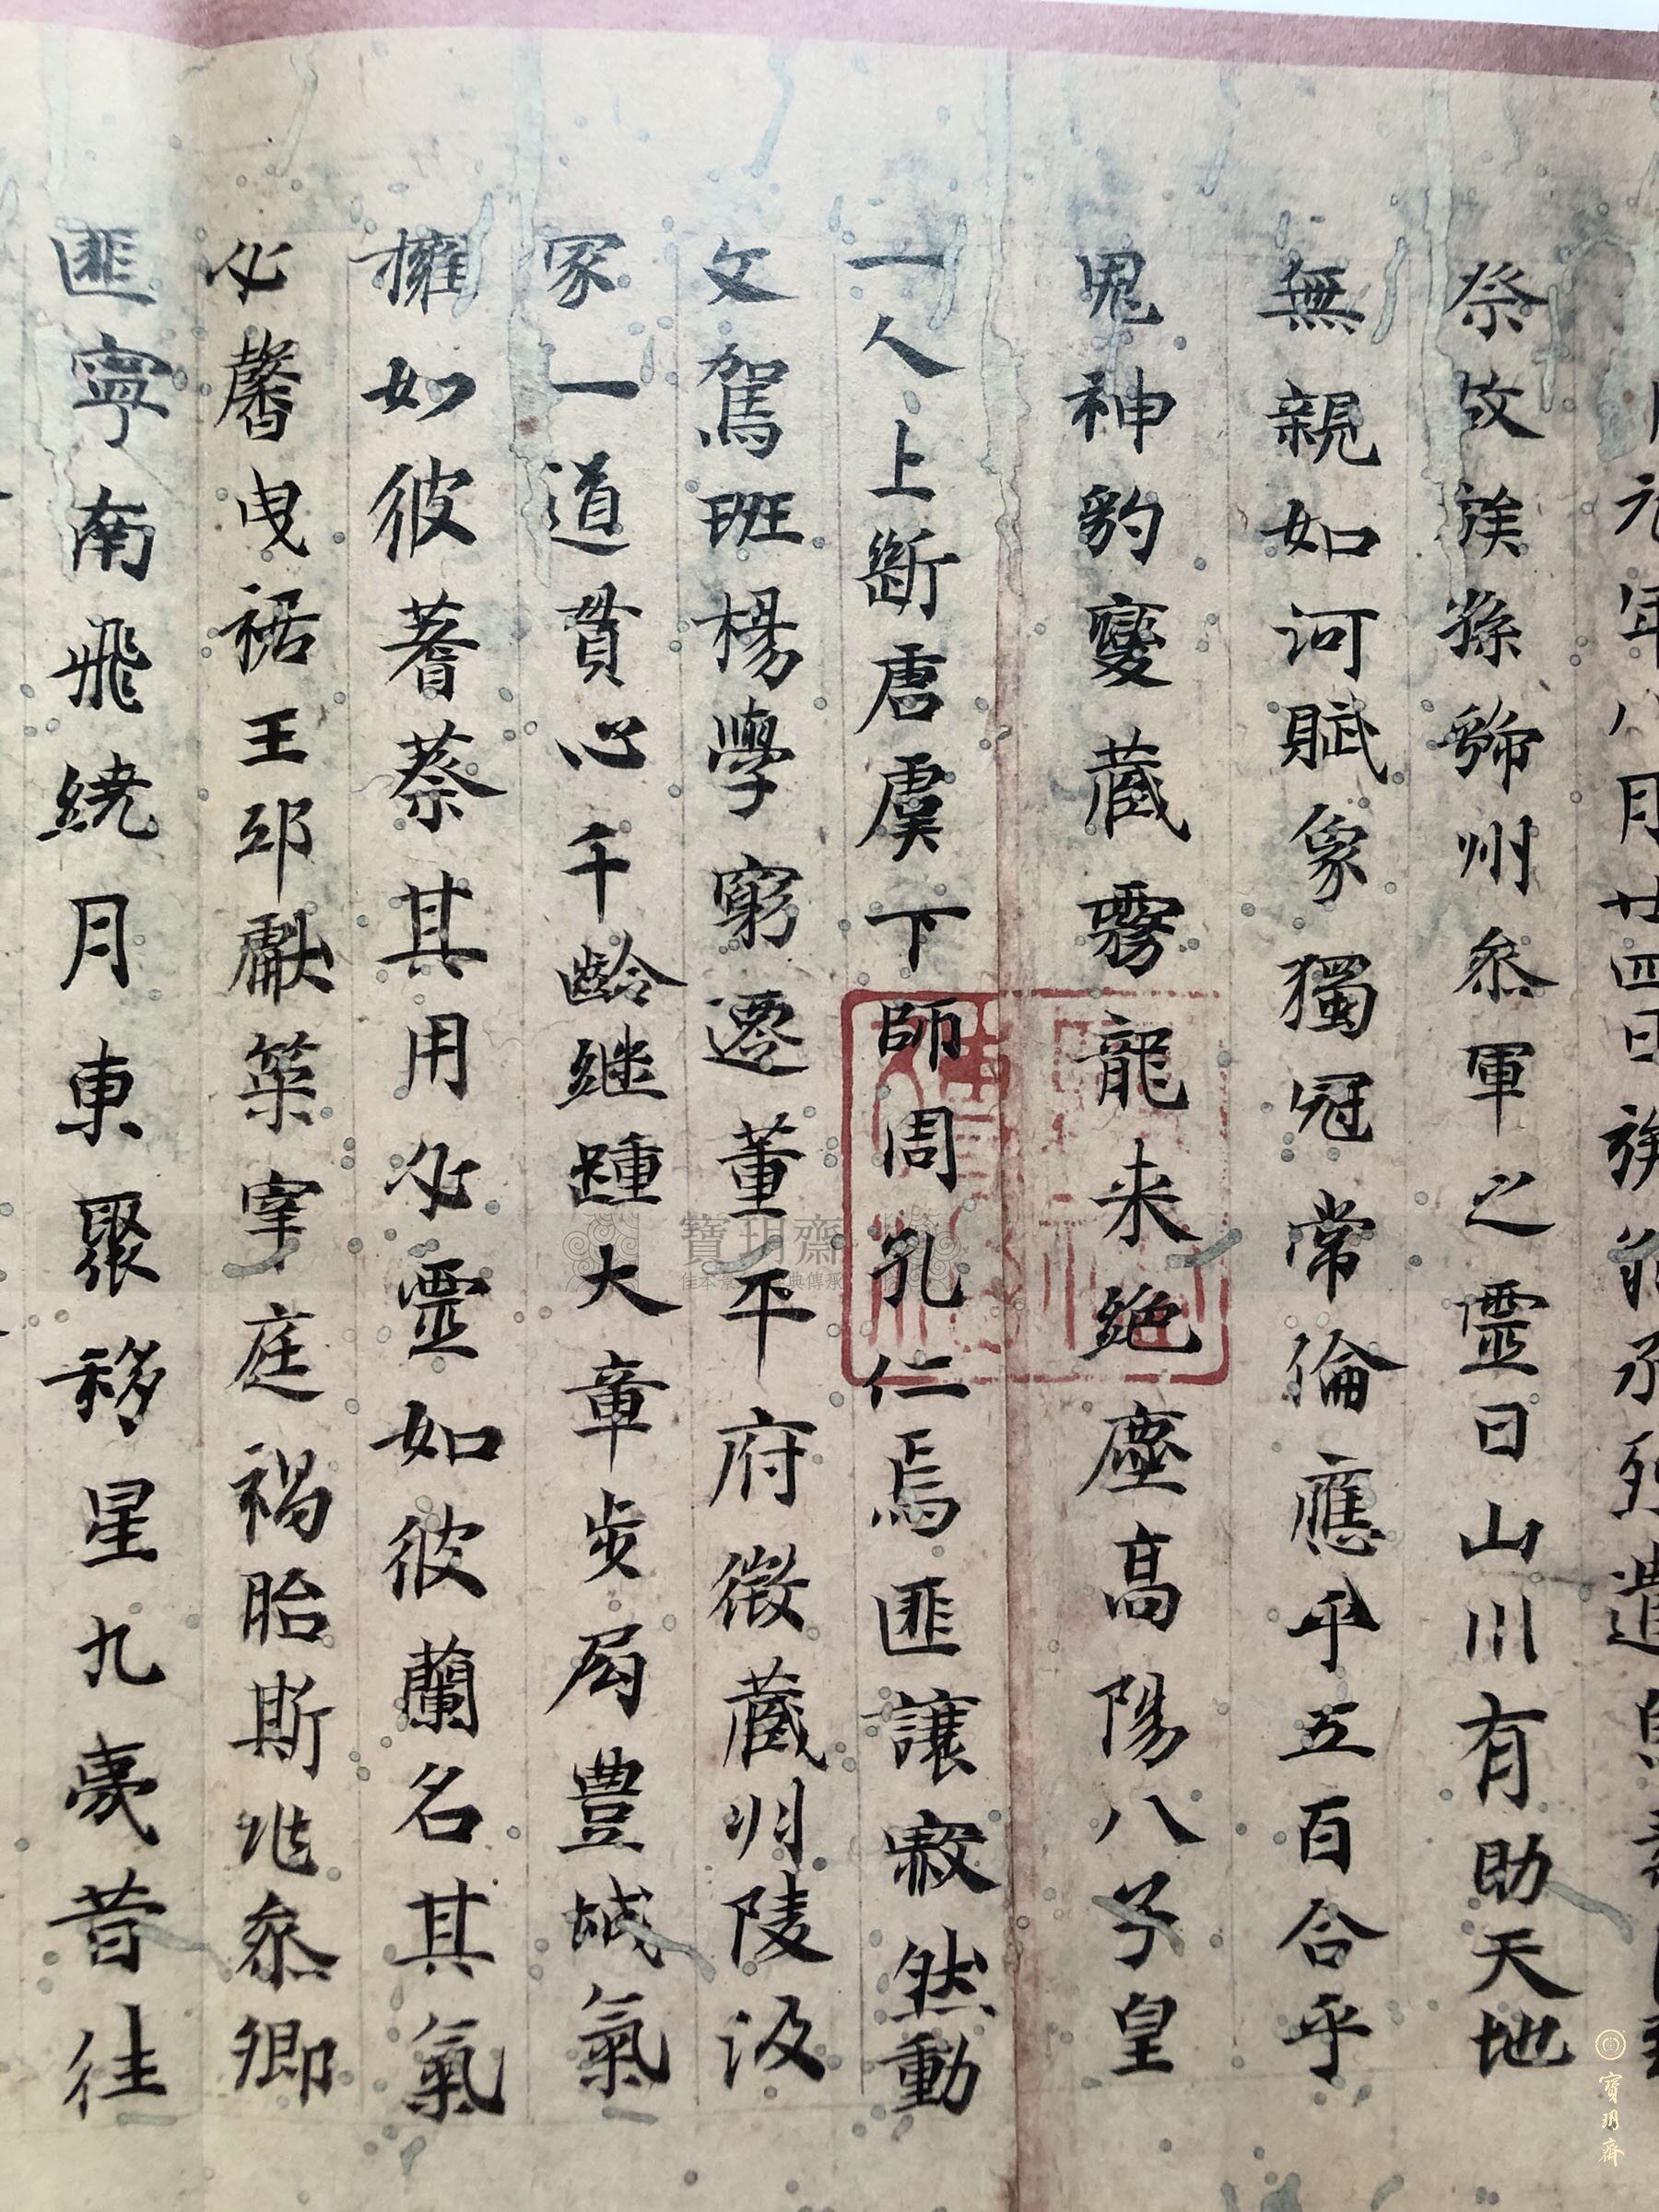 元年八月廿四日族翁承烈遣
祭文族孫虢州叅軍之靈曰山川有助天地
無親如河賦象獨冠常倫應乎五百合乎
鬼神豹變藏霧龍来絶塵高陽八子皇
一人上斷唐虞下師周孔仁焉匪讓寂然動
文駕班楊學窮遷董平府徵藏州陵汲
冢一道貫心千齡継踵大章步局豊城氣
擁如彼蓍蔡其用必靈如彼蘭名其氣
必馨曳裾王邸獻策宰庭禍胎斯兆叅卿
匪寧南飛繞月東聚移星九豪昔往
寶玥齋
寶玥齋